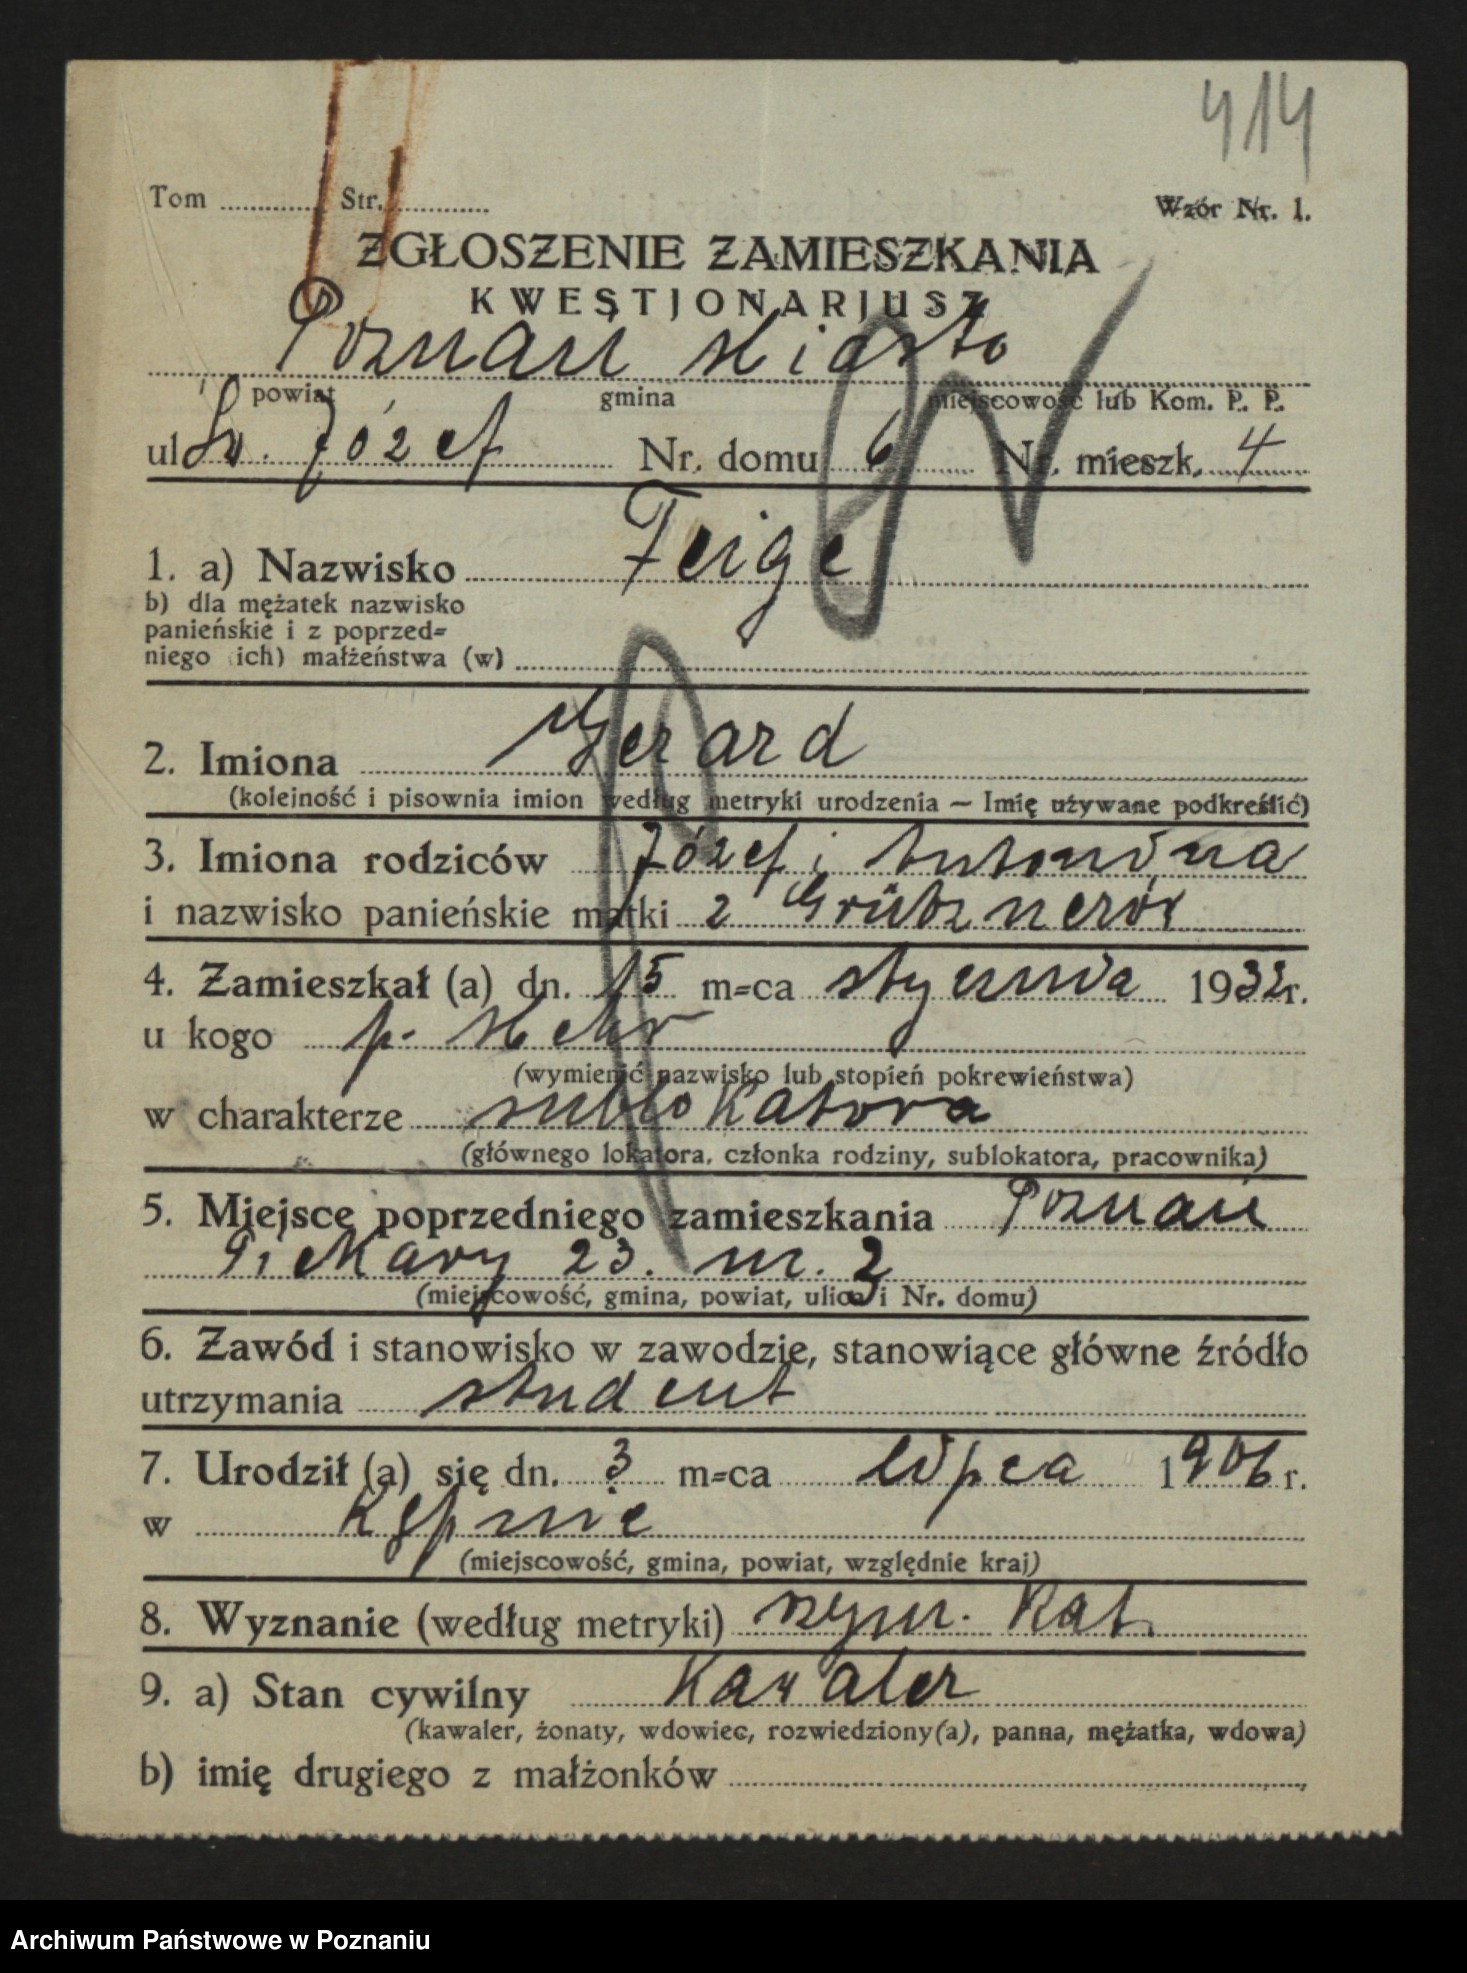 414
Tom ............ Str. ............
Wzór Nr. 1.
ZGŁOSZENIE ZAMIESZKANIA
KWESTJONARJUSZ
Poznań Miasto
powiat gmina miejscowość lub Kom. P. P.
ul Św. Józef Nr. domu 6 Nr. mieszk. 4
1. a) Nazwisko Feige
b) dla mężatek nazwisko
panieńskie i z poprzed=
niego (ich) małżeństwa (w)
2. Imiona Gerard
(kolejność i pisownia imion według metryki urodzenia — Imię używane podkreślić)
3. Imiona rodziców Józef i Antonina
i nazwisko panieńskie matki z Grütznerów
4. Zamieszkał (a) dn. 15 m=ca stycznia 1932 r.
u kogo p.
(wymienić nazwisko lub stopień pokrewieństwa)
w charakterze sublokatora
(głównego lokatora, członka rodziny, sublokatora, pracownika)
5. Miejsce poprzedniego zamieszkania Poznań
Piekary 23. m. 2
(miejscowość, gmina, powiat, ulica i Nr. domu)
6. Zawód i stanowisko w zawodzie, stanowiące główne źródło
utrzymania student
7. Urodził (a) się dn. 3 m=ca lipca 1906 r.
w Kępnie
(miejscowość, gmina, powiat, względnie kraj)
8. Wyznanie (według metryki) rzym. kat.
9. a) Stan cywilny Kawaler
(kawaler, żonaty, wdowiec, rozwiedziony(a), panna, mężatka, wdowa)
b) imię drugiego z małżonków
Archiwum Państwowe w Poznaniu